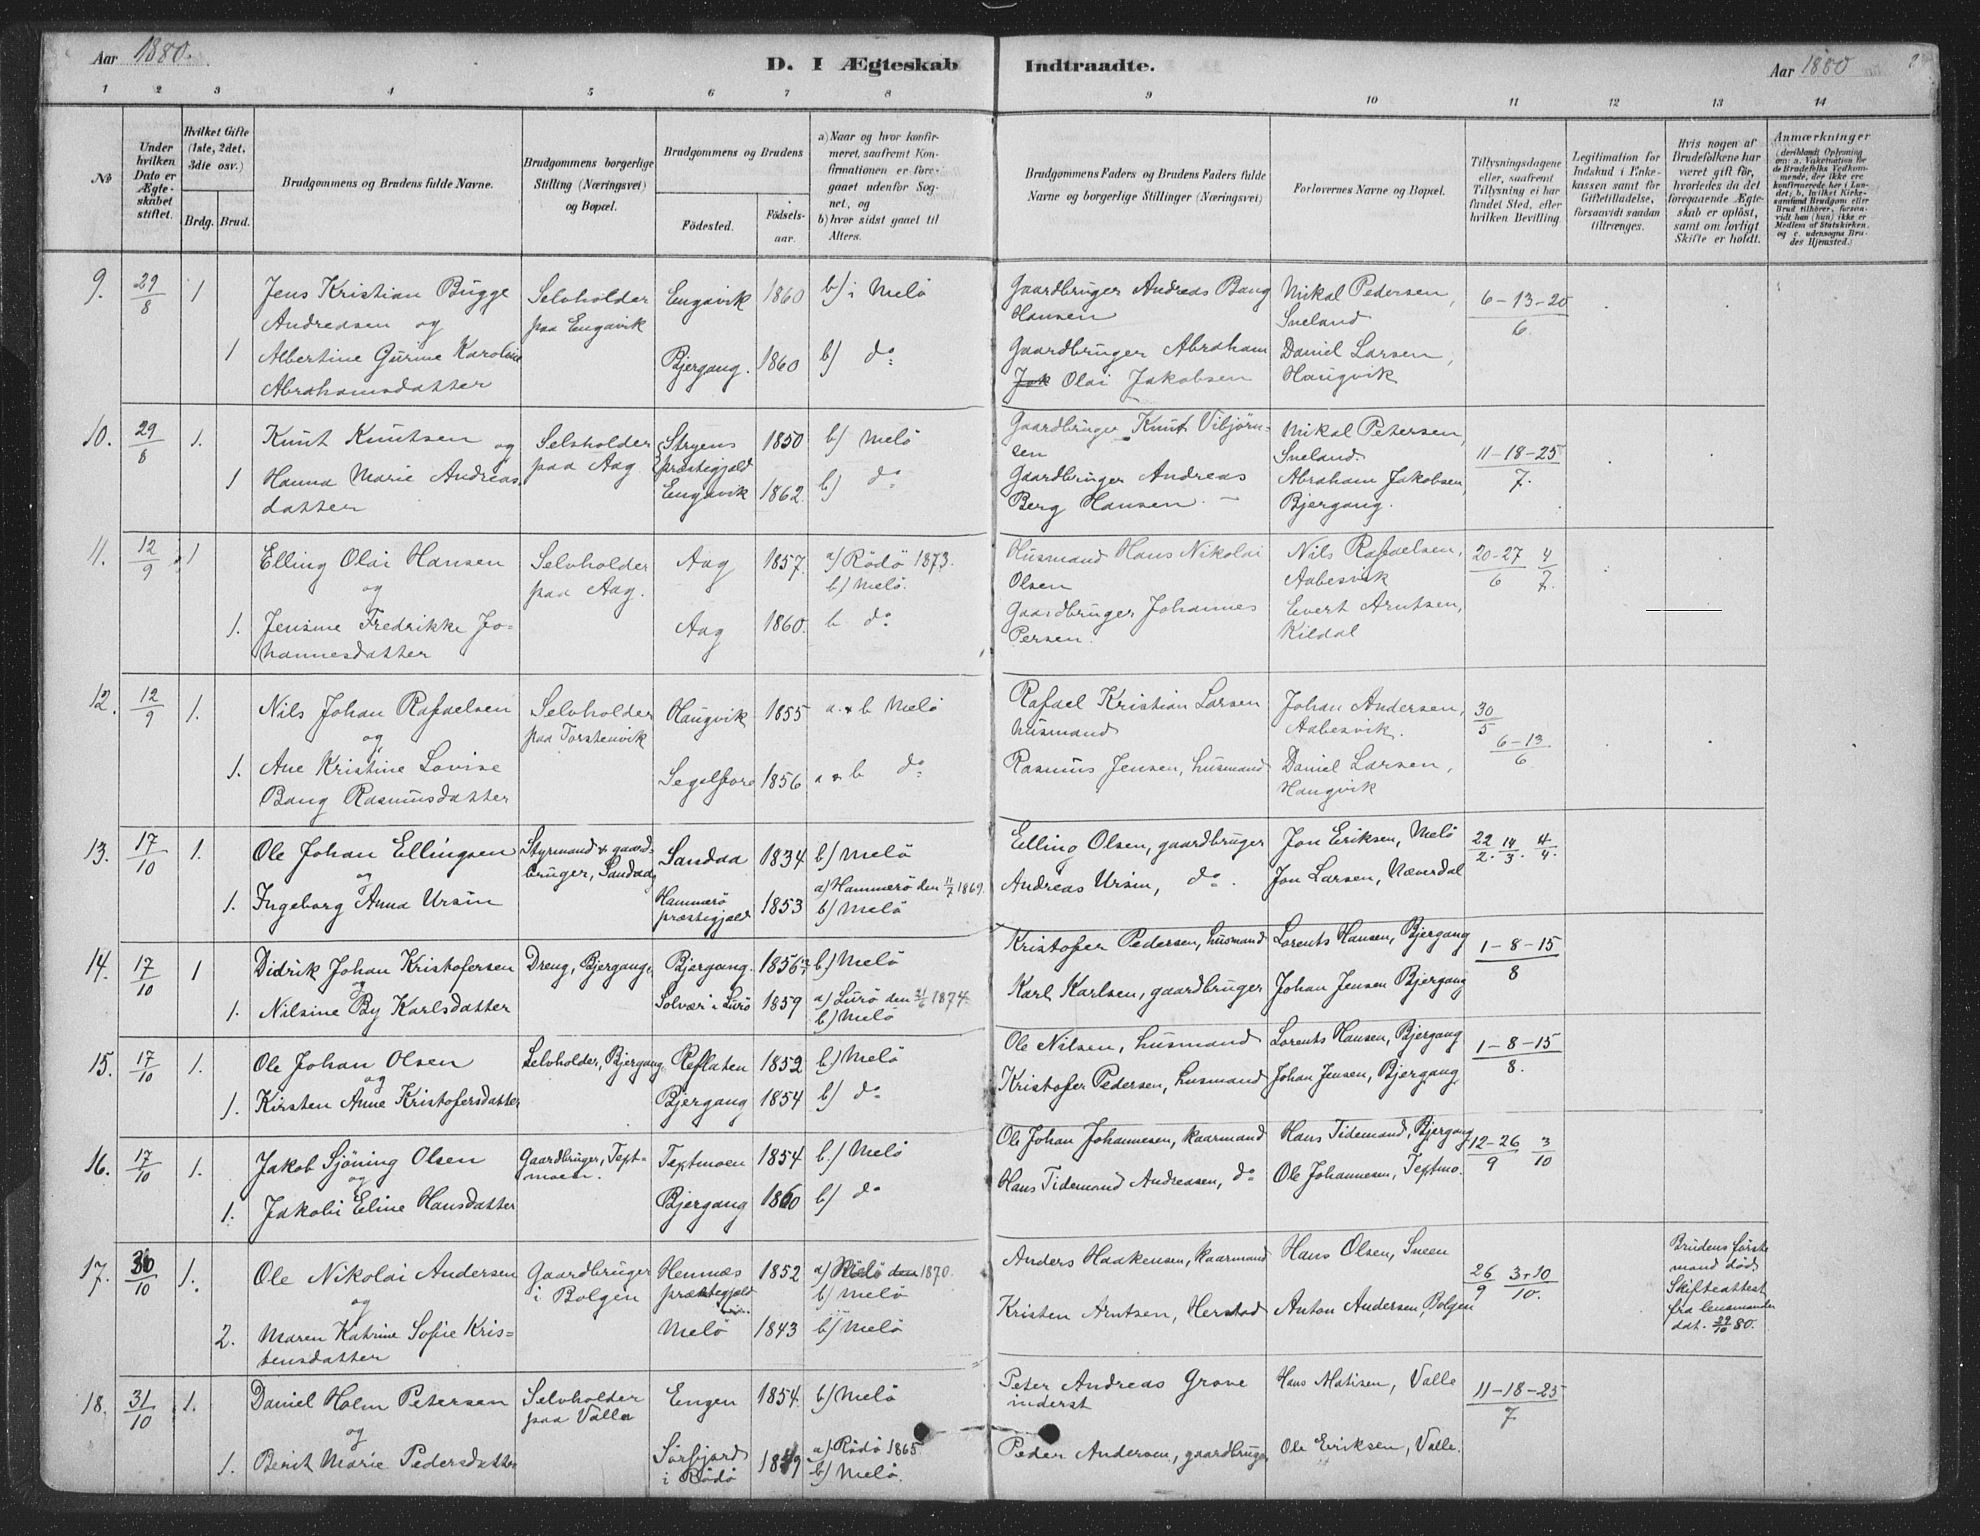 Aar 1880.
D. I Ægteskab Indtraadte.
Aar 1880
1 2 3 4 5 6 7 8 9 10 11 12 13 14
No
Under hvilken Dato er Ægteskabet stiftet.
Hvilket Gifte (1ste, 2det, 3die osv.)
Brdg. Brud.
Brudgommens og Brudens fulde Navne.
Brudgommens borgerlige Stilling (Næringsvei) og Bopæl.
Brudgommens og Brudens
Fødested.
Fødselsaar.
a) Naar og hvor konfirmeret, saafremt Konfirmationen er foregaaet udenfor Sognet, og
b) hvor sidst gaaet til Alters.
Brudgommens Faders og Brudens Faders fulde Navne og borgerlige Stillinger (Næringsvei)
Forlovernes Navne og Bopæl.
Tillysningsdagene eller, saafremt Tillysning ei har fundet Sted, efter hvilken Bevilling
Legitimation for Indskud i Enkekassen samt for Giftetilladelse, forsaavidt saadan tiltrænges.
Hvis nogen af Brudefolkene har været gift før, hvorledes da det foregaaende Ægteskab er opløst, samt om lovligt Skifte er holdt.
Anmærkninger
(deriblandt Oplysning om: a. Vakcination for de Brudefolks Vedkommende, der ikke ere konfirmerede her i Landet; b. hvilket Kirkesamfund Brudgom eller Brud tilhører, forsaavidt han (hun) ikke er Medlem af Statskirken, og c. udensogns Brudes Hjemsted.)
9. 29/8 1 Jens Kristian Bugge Selvholder Engavik 1860 b) i Melö Gaardbruger Andreas Bang Mikal Pedersen, 6-13-20/6.
Andreasen og paa Engavik Hansen Sneland
1 Albertine Gurine Karoline Bjergang. 1860 b) do Gaardbruger Abraham Daniel Larsen,
Abrahamsdatter Jak Olai Jakobsen Haugvik
10. 29/8 1. Knut Knutsen og Selvholder Stryens 1850 b) Melö Gaardbruger Knut Vibjörn- Mikal Petersen, 11-18-25/7.
paa Aag. præstegjæld sen Sneland.
1 Hanna Marie Andreas- Engavik 1862. b) do Gaardbruger Andreas Abraham Jakobsen,
datter Berg Hansen. Bjergang.
11. 12/9 1 Elling Olai Hansen Selvholder Aag 1857. a) Rödö 1873. Husmand Hans Nikolai Nils Rafaelsen, 20-27/6 4/7.
og paa Aag. b) Melö. Olsen Aabesvik
1. Jensine Fredrikke Jo- Aag 1860. b do Gaardbruger Johannes Evert Arntsen,
hannesdatter Persen. Kildal
12. 12/9 1. Nils Johan Rafaelsen Selvholder Haugvik 1855 a. & b Melö Rafael Kristian Larsen Johan Andersen, 30/5
og paa Torstenvik husmand Aabesvik. 6-13/6
1. Ane Kristine Lovise Segelfore 1856 a & b do Rasmus Jensen, husmand Daniel Larsen,
Bang Rasmusdatter Haugvik
13. 17/10 1. Ole Johan Ellingsen Styrmand & gaard- Sandaa 1834 b) Melö Elling Olsen, gaardbruger Jon Eriksen, Melö 22/2. 14/3. 4/4.
og bruger, Sandaa
1. Ingeborg Anna Ursin Hammerö præstegjæld 1853 a) Hammerö den 11/7 1869. b) Melö Andreas Ursin, do. Jon Larsen, Næverdal
14. 17/10 1 Didrik Johan Kristofersen Dreng, Bjergang. Bjergang. 1856 b) Melö Kristofer Pedersen, husmand Lorents Hansen, Bjergang 1-8-15/8
og
1. Nilsine By Karlsdatter Solvær i Lurö 1859 a) Lurö den 21/6 1874. b) Melö Karl Karlsen, gaardbruger Johan Jensen Bjergang
15. 17/10 1. Ole Johan Olsen Selvholder, Bjergang. Refladen 1852 b) Melö Ole Nilsen, husmand Lorents Hansen, Bjergang 1-8-15/8.
og
1. Kirsten Anne Kristofersdatter Bjergang 1854 b) do Kristofer Pedersen, husmand Johan Jensen, Bjergang
16. 17/10 1. Jakob Sjöning Olsen Gaardbruger, Text- Textmoen 1854 b.) Melö Ole Johan Johannesen, kaarmand Hans Tidemand, Bjergang 12-26/9 3/10
og moen.
1. Jakobi Eline Hansdatter Bjergang 1860 b) do Hans Tidemand Andreasen, do Ole Johannesen, Textmo.
17. 30/10 1. Ole Nikolai Andersen Gaardbruger Hemnæs 1852 a) Rödö den 1870. Anders Haakensen, kaarmand Hans Olsen, Sneen 26/9 3+10/10. Brudens første
og i Bolgen præstegjæld b) Melö mand död.
2. Maren Katrine Sofie Kris- Melö 1843 b) Melö Kristen Arntsen, Herstad Anton Andersen, Bolgen Skifteattest
tensdatter fra lensmanden
dat. 29/10 80.
18. 31/10 1. Daniel Holm Petersen Selvholder Engen 1854. b) Melö Peter Andreas Grove Hans Matisen, Valle 11-18-25/7
og paa Valla inderst
1. Berit Marie Pedersdatter Sörfjord i Rödö 1849 a) Rödö 1865 b) Melö. Peder Andersen, gaardbruger Ole Eriksen, Valle.